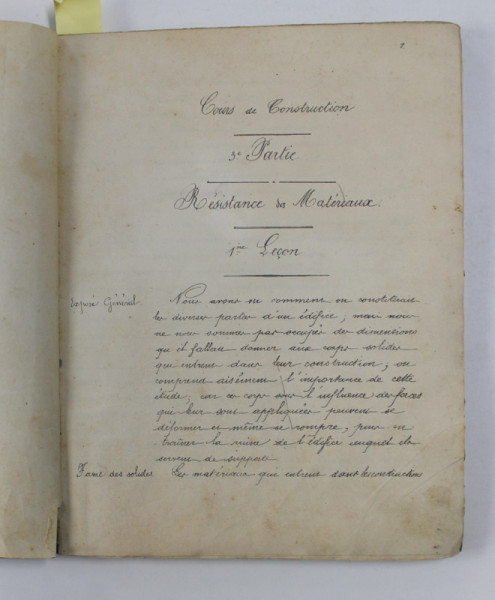 Cours de Construction
3e Partie
Résistance des Matériaux.
1ère Leçon
Exposé Général. Nous avons vu comment on constituait
les diverses parties d'un édifice; mais nous
ne nous sommes pas occupés des dimensions
qu'il fallait donner aux corps solides
qui entrent dans leur construction; on
comprend aisément l'importance de cette
étude, car ce corps sous l'influence des forces
qui leur sont appliquées peuvent se
déformer et même se rompre, puis en
traîner la ruine de l'édifice auquel ils
servent de support.
Forme des solides Les matériaux qui entrent dans les constructions